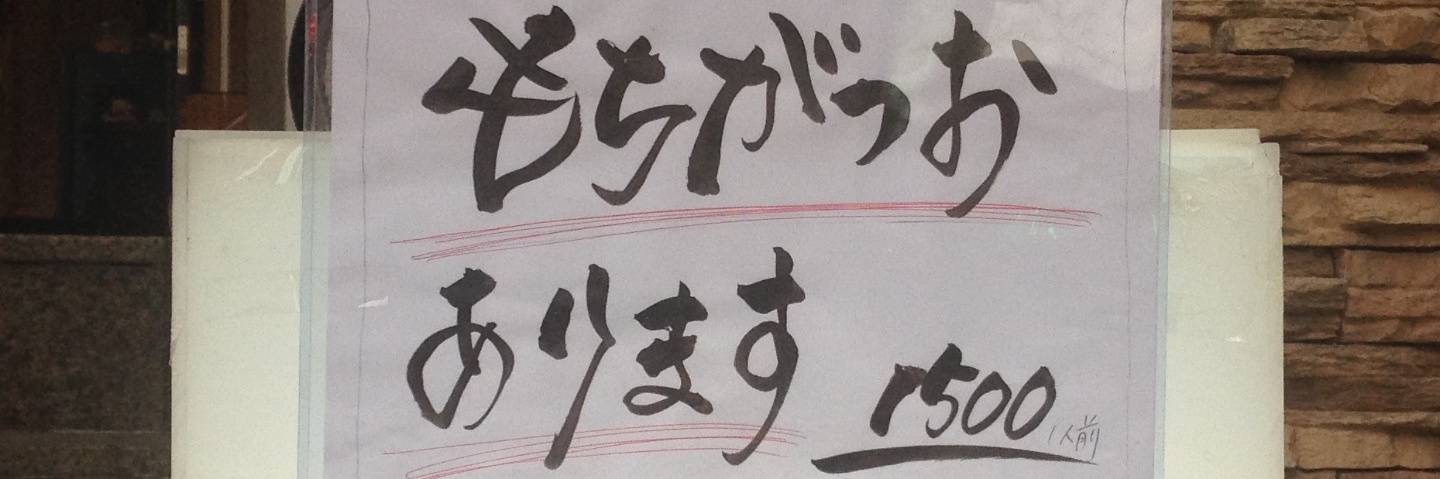 もちがつお
あります 1500 1人前